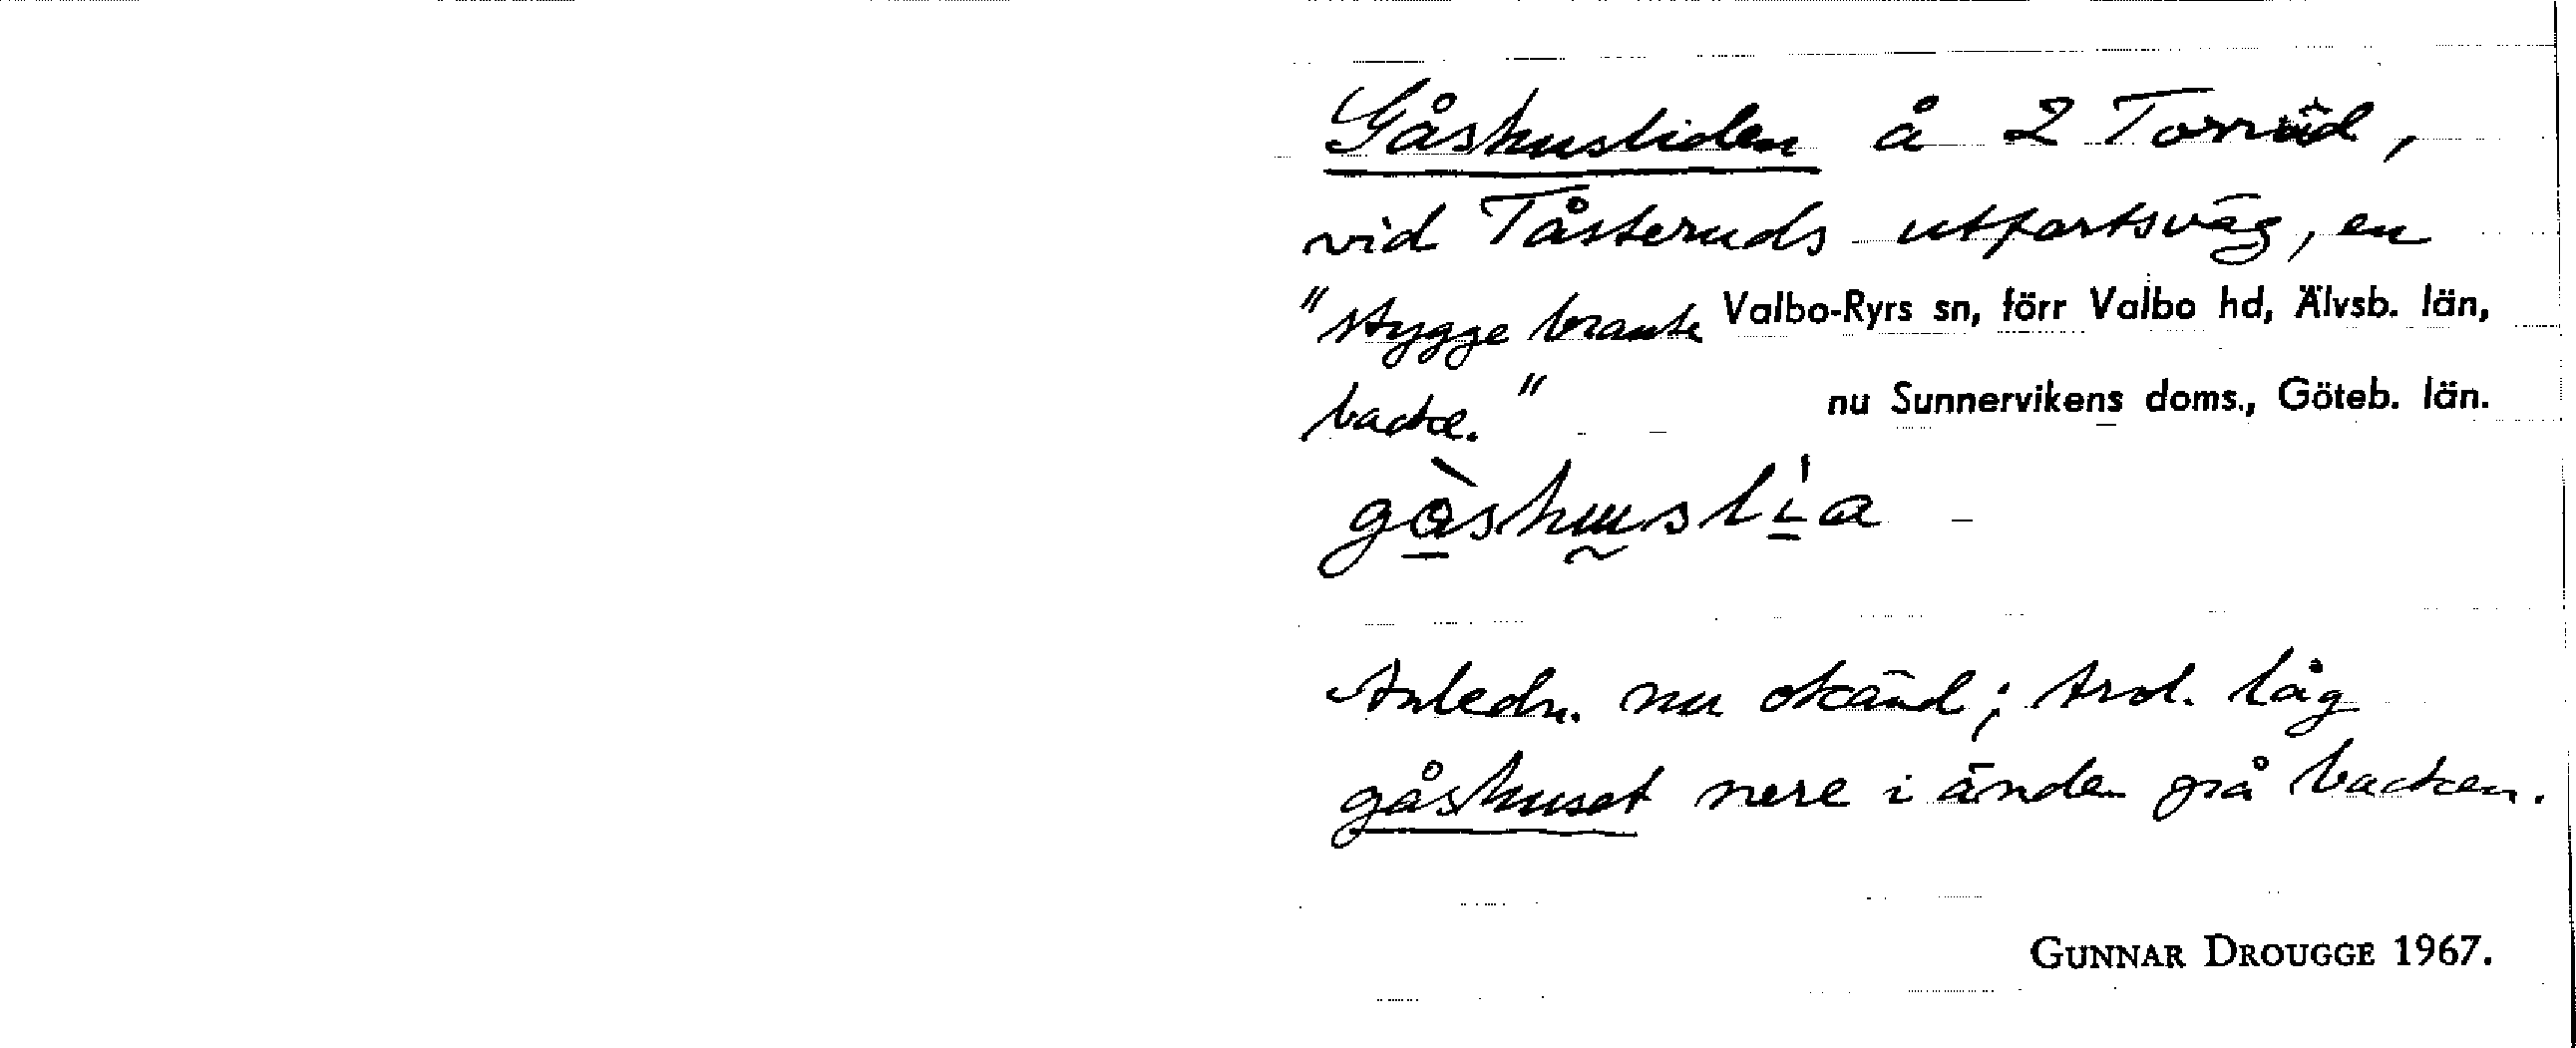 Gåshusliden å 2 Torrud,
vid Tåsteruds utfartsväg, en
"stygge brante Valbo-Ryrs sn, förr Valbo hd, Älvsb. län,
backe." nu Sunnervikens doms., Göteb. län.
gòshuslìa
Anledn. nu okänd; trol. låg
gåshuset nere i änden på backen.
GUNNAR DROUGGE 1967.